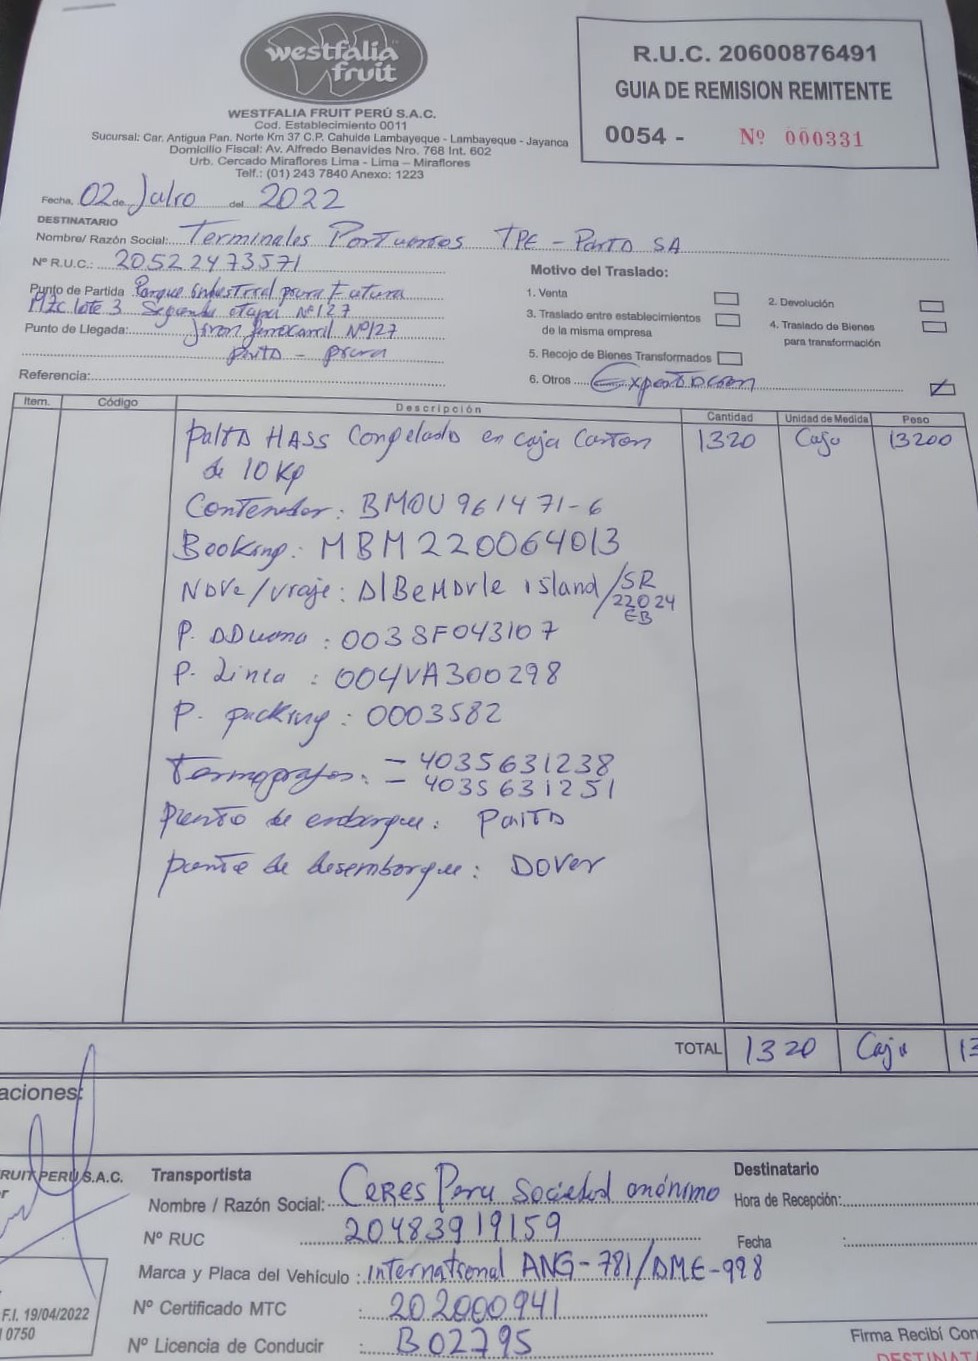 westfalia
fruit
WESTFALIA FRUIT PERÚ S.A.C.
Cod. Establecimiento 0011
Sucursal: Car. Antigua Pan. Norte Km 37 C.P. Cahuide Lambayeque - Lambayeque - Jayanca
Domicilio Fiscal: Av. Alfredo Benavides Nro. 768 Int. 602
Urb. Cercado Miraflores Lima - Lima – Miraflores
Telf.: (01) 243 7840 Anexo: 1223
R.U.C. 20600876491
GUIA DE REMISION REMITENTE
0054 - Nº 000331
Fecha, 02 de Julio del 2022
DESTINATARIO
Nombre/ Razón Social: Terminales Portuarios TPE - Paita SA
Nº R.U.C.: 20522473571
Punto de Partida Parque Industrial piura Futura
Mzc lote 3 Segunda etapa Nº127
Punto de Llegada: Jiron ferrocarril Nº127
paita - piura
Referencia:
Motivo del Traslado:
1. Venta
2. Devolución
3. Traslado entre establecimientos
de la misma empresa
4. Traslado de Bienes
para transformación
5. Recojo de Bienes Transformados
6. Otros Exportacion
Item. Código Descripción Cantidad Unidad de Medida Peso
palta HASS Congelado en caja Carton 1320 Caja 13200
de 10 Kg
Contenedor: BMOU 961471-6
Booking: MBM220064013
Nave/viaje: AlBeMarle island/SR
22024
EB
P. Aduana : 0038F043107
P. Linea : 004VA300298
P. packing : 0003582
Termografos: - 4035631238
- 4035631251
punto de embarque: Paita
punto de desembarque: Dover
TOTAL 1320 Caja 13
aciones:
RUIT PERÚ S.A.C.
F.I. 19/04/2022
0750
Transportista
Nombre / Razón Social: Ceres Peru Sociedad anónima
Nº RUC 20483919159
Marca y Placa del Vehículo : international ANG-781/DME-998
Nº Certificado MTC : 202000941
Nº Licencia de Conducir : B02795
Destinatario
Hora de Recepción:
Fecha :
Firma Recibí Con
DESTINAT